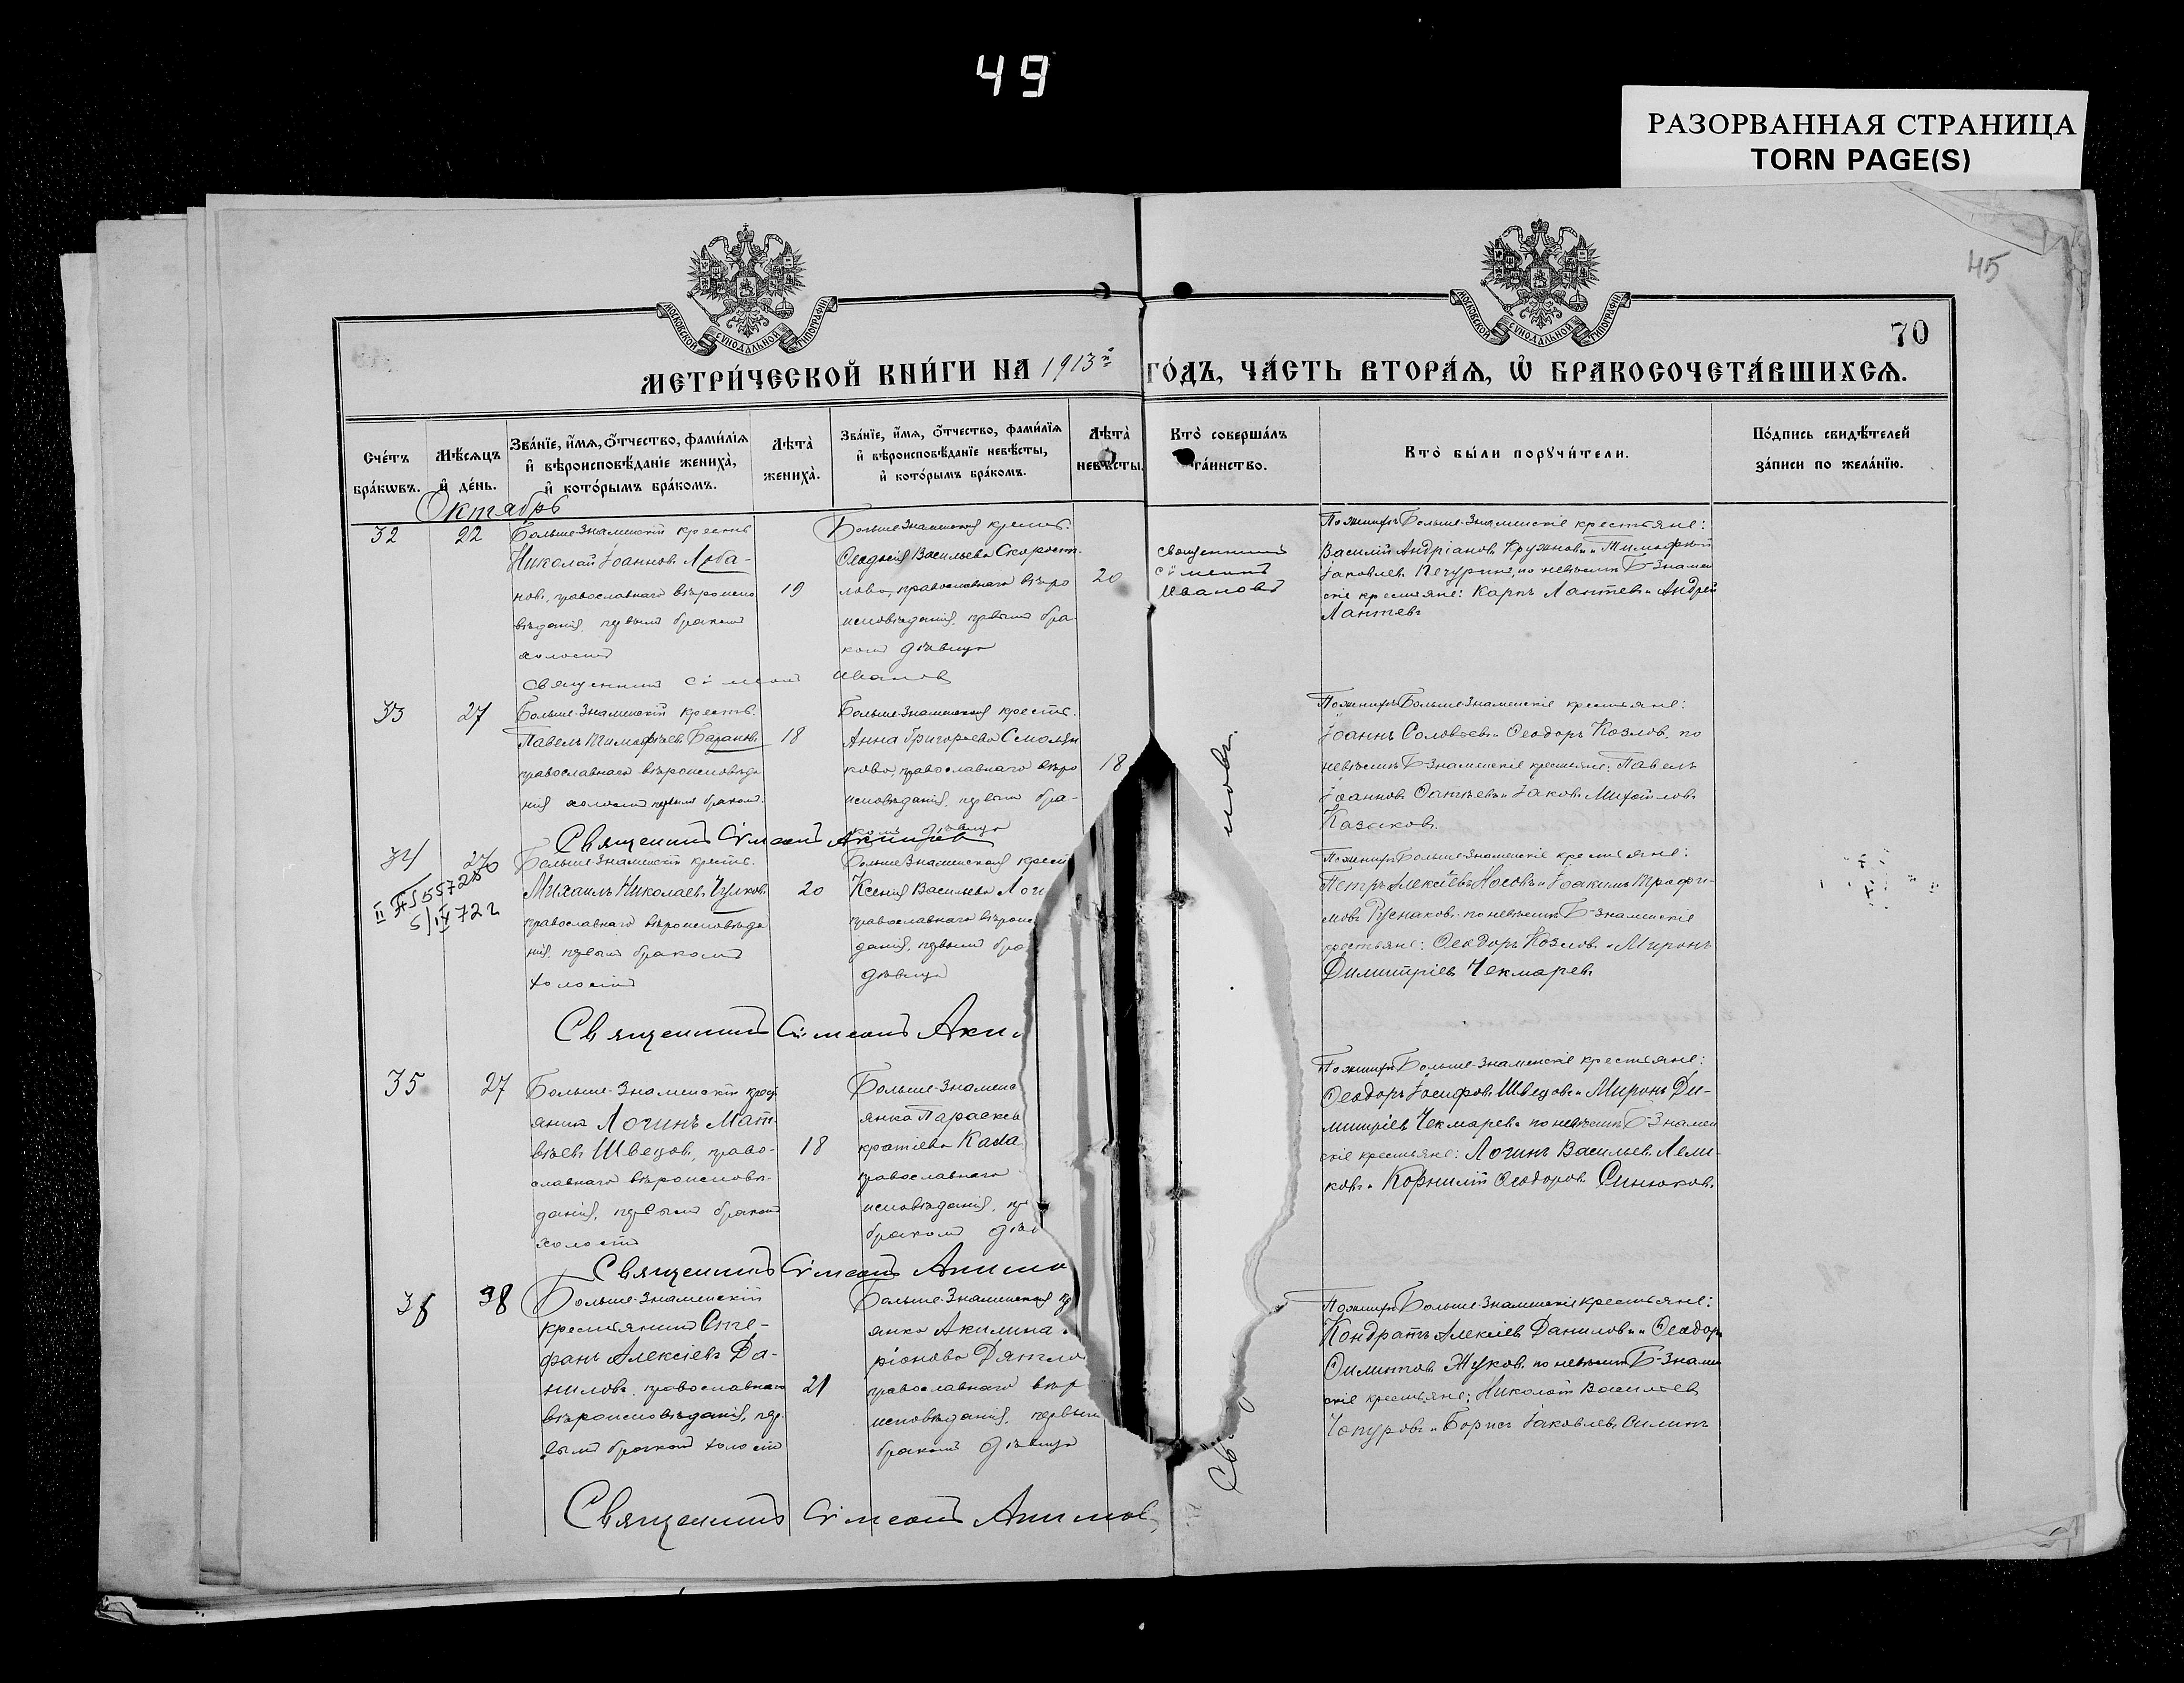 49
РАЗОРВАННАЯ СТРАНИЦА
TORN PAGE(S)
45
70
МОСКОВСКОЙ СѴНОДАЛЬНОЙ ТИПОГРАФІИ
МОСКОВСКОЙ СѴНОДАЛЬНОЙ ТИПОГРАФІИ
МЕТРИ́ЧЕСКОЙ КНИ́ГИ НА 1913й ГО́ДЪ, ЧА́СТЬ ВТОРА́Ѧ, Ѡ҆ БРАКОСОЧЕТА́ВШИХСѦ.
Сче́тъ бра́кѡвъ.
Мѣ́сѧцъ и҆ де́нь.
Зва́нїе, и҆́мѧ, ѻ҆́тчество, фами́лїѧ и҆ вѣроисповѣ́данїе жениха̀, и҆ кото́рымъ бра́комъ.
Лѣта̀ жениха̀.
Зва́нїе, и҆́мѧ, ѻ҆́тчество, фами́лїѧ и҆ вѣроисповѣ́данїе невѣ́сты, и҆ кото́рымъ бра́комъ.
Лѣта̀ невѣ́сты.
Кто̀ соверша́лъ та́инство.
Кто̀ бы́ли порꙋчи́тели.
По́дпись свидѣ́телей за́писи по жела́нїю.
Октябрь
32
22
Больше-Знаменскій крестьян
Николай Іоанновъ Лоба-
новъ, православнаго вѣроиспо
вѣданія, первымъ бракомъ
холостъ
19
Больше-Знаменская крестьян.
Ѳеодосія Васильева Скорости
лова, православнаго вѣро
исповѣданія, первымъ бра
комъ дѣвица
20
священникъ
Сѵмеонъ
Ивановъ
По женихѣ Больше-Знаменскіе крестьяне:
Василій Андріановъ Кружновъ и Тимофей
Іаковлевъ Печуринъ, по невѣстѣ Б-Знамен
скіе крестьяне: Карпъ Лаптевъ и Андрей
Лаптевъ
33
27
Больше-Знаменскій крестьян.
Павелъ Тимофѣевъ Барановъ
православнаго вѣроисповѣда
нія холостъ первымъ бракомъ.
18
Больше-Знаменская крестьян.
Анна Григорьева Смоляи
кова, православнаго вѣро
исповѣданія, первымъ бра-
комъ дѣвица
18
Священникъ Сѵмеонъ Акимовъ
По женихѣ Больше-Знаменскіе крестьяне:
Іоаннъ Соловьевъ и Ѳеодоръ Козловъ, по
невѣстѣ Б-Знаменскіе крестьяне: Павелъ
Іоанновъ и Іаковъ Михайловъ
Казаковъ.
34
27
Больше-Знаменскій крестьян.
Михаилъ Николаевъ Чулковъ
православнаго вѣроисповѣда
нія, первымъ бракомъ
холостъ
20
Больше-Знаменская крест
Ксенія Васильева Логи
православнаго вѣроис
данія, первымъ бра
дѣвица
Священникъ Сѵмеонъ Аки
По женихѣ Больше-Знаменскіе крестьяне:
Петръ Алексѣевъ Носовъ и Іоакимъ Трофи-
мовъ Руснаковъ по невѣстѣ Б-Знаменскіе
крестьяне: Ѳеодоръ Козловъ и Миронъ
Димитріевъ Чекмаревъ
35
27
Больше-Знаменскій крест
янинъ Логинъ Мат
вѣевъ Швецовъ, право-
славнаго вѣроисповѣ-
данія, первымъ бракомъ
холостъ
18
Больше-Знаменс
янка Параскев
кратіева Кала
православнаго
исповѣданія, пе
бракомъ дѣв
Священникъ Сѵмеонъ Акимо
По женихѣ Больше-Знаменскіе крестьяне:
Ѳеодоръ Іосифовъ Швецовъ и Миронъ Ди-
митріевъ Чекмаревъ по невѣстѣ Б-Знамен
скіе крестьяне: Логинъ Васильевъ Леми-
ковъ и Корнилій Ѳеодоровъ Синюковъ
36
Больше-Знаменскій
крестьянинъ Сте-
фанъ Алексіевъ Да-
ниловъ, православнаго
вѣроисповѣданія, пер
вымъ бракомъ холостъ
21
Больше-Знаменская кр
янка Акилина
ріонова Дятло
православнаго вѣр
исповѣданія, первым
бракомъ дѣвица
Священникъ Сѵмеонъ Акимов
По женихѣ Больше-Знаменскіе крестьяне:
Кондратъ Алексіевъ Даниловъ и Ѳеодоръ
Филиповъ Жуковъ по невѣстѣ Б-Знамен
скіе крестьяне: Николай Васильевъ
Чопуровъ и Борисъ Іаковлевъ Силинъ